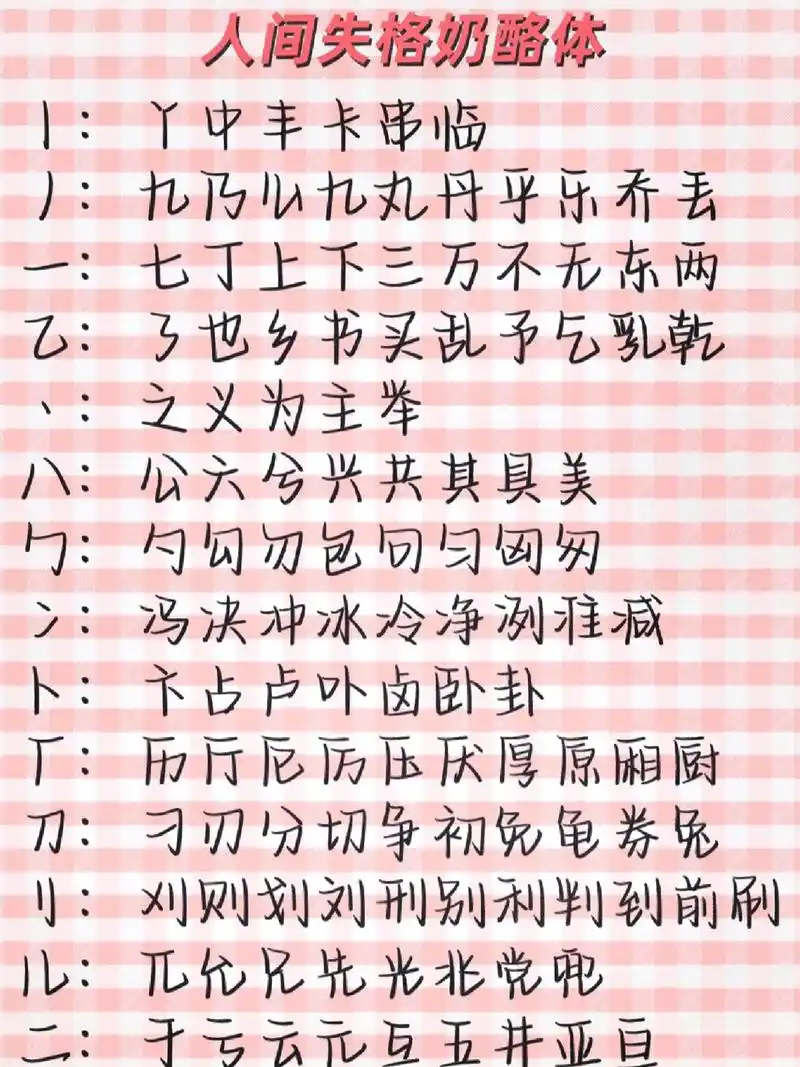 人间失格奶酪体
丨：丫中丰卡串临
丿：九乃九丸丹乎乐乔丢
一：七丁上下三万不无东两
乙：了也乡书买乱予乞乳乾
丶：之义为主举
八：公六兮兴共其具美
勹：勺勾勿包句匀匈匆
冫：冯决冲冰冷净冽准减
卜：卞占卢卟卤卧卦
厂：历厅厄厉压厌厚原厢厨
刀：刁刃分切争初免龟券兔
刂：刈则划刘刑别利判到前刷
儿：兀允兄先光兆党兜
二：于亏云元互五井亚亘